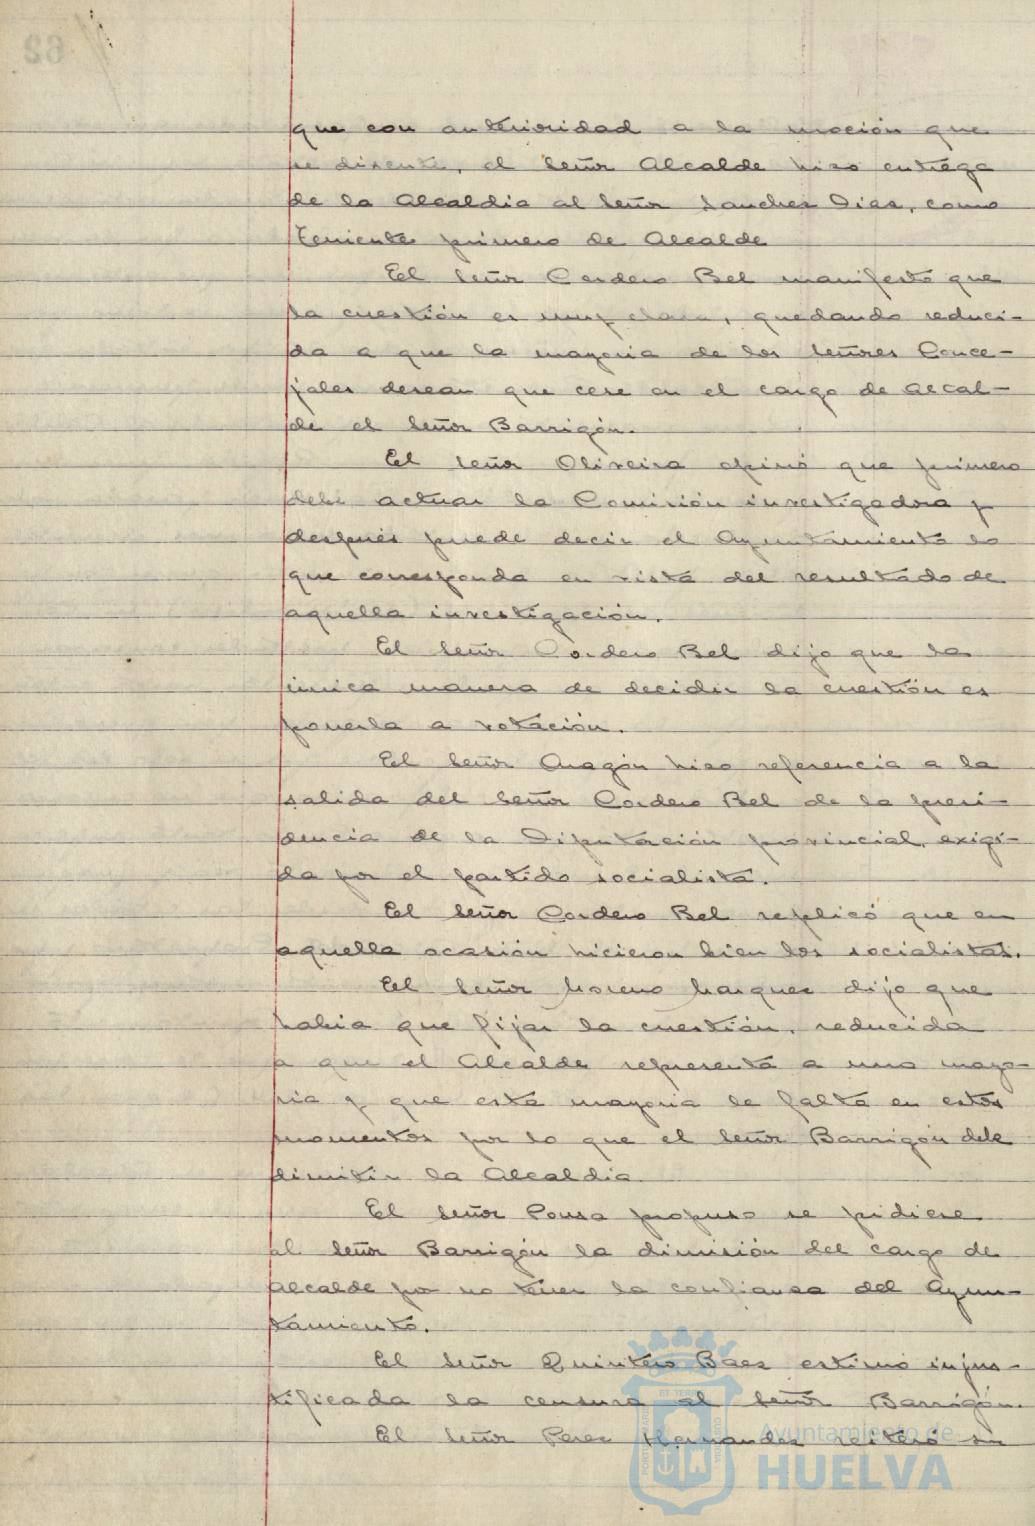 que con anterioridad a la moción que
se discute, el señor Alcalde hizo entrega
de la Alcaldia al señor Sanchez Diaz, como
Teniente primero de Alcalde
El señor Cordero Bel manifestó que
la cuestión es muy clara, quedando reduci-
da a que la mayoria de los señores Conce-
jales desean que cese en el cargo de Alcal-
de el señor Barrigón.
El señor Oliveira opinó que primero
debe actuar la Comisión investigadora y
después puede decir el Ayuntamiento lo
que corresponda en vista del resultado de
aquella investigación.
El señor Cordero Bel dijo que la
única manera de decidir la cuestión es
ponerla a votación.
El señor Aragón hizo referencia a la
salida del señor Cordero Bel de la presi-
dencia de la Diputación provincial, exigi-
da por el partido socialista.
El señor Cordero Bel replicó que en
aquella ocasión hicieron bien los socialistas.
El señor Moreno Marquez dijo que
habia que fijar la cuestión, reducida
a que el Alcalde representa a una mayo-
ria y que esta mayoria le falta en estos
momentos por lo que el señor Barrigón debe
dimitir la Alcaldia
El señor Ponsa propuso se pidiese
al señor Barrigón la dimisión del cargo de
Alcalde por no tener la confianza del Ayun-
tamiento.
El señor Quintero Baez estimó injus-
tificada la censura al señor Barrigón.
El señor Perez Hernandez reiteró su
Ayuntamiento de
HUELVA